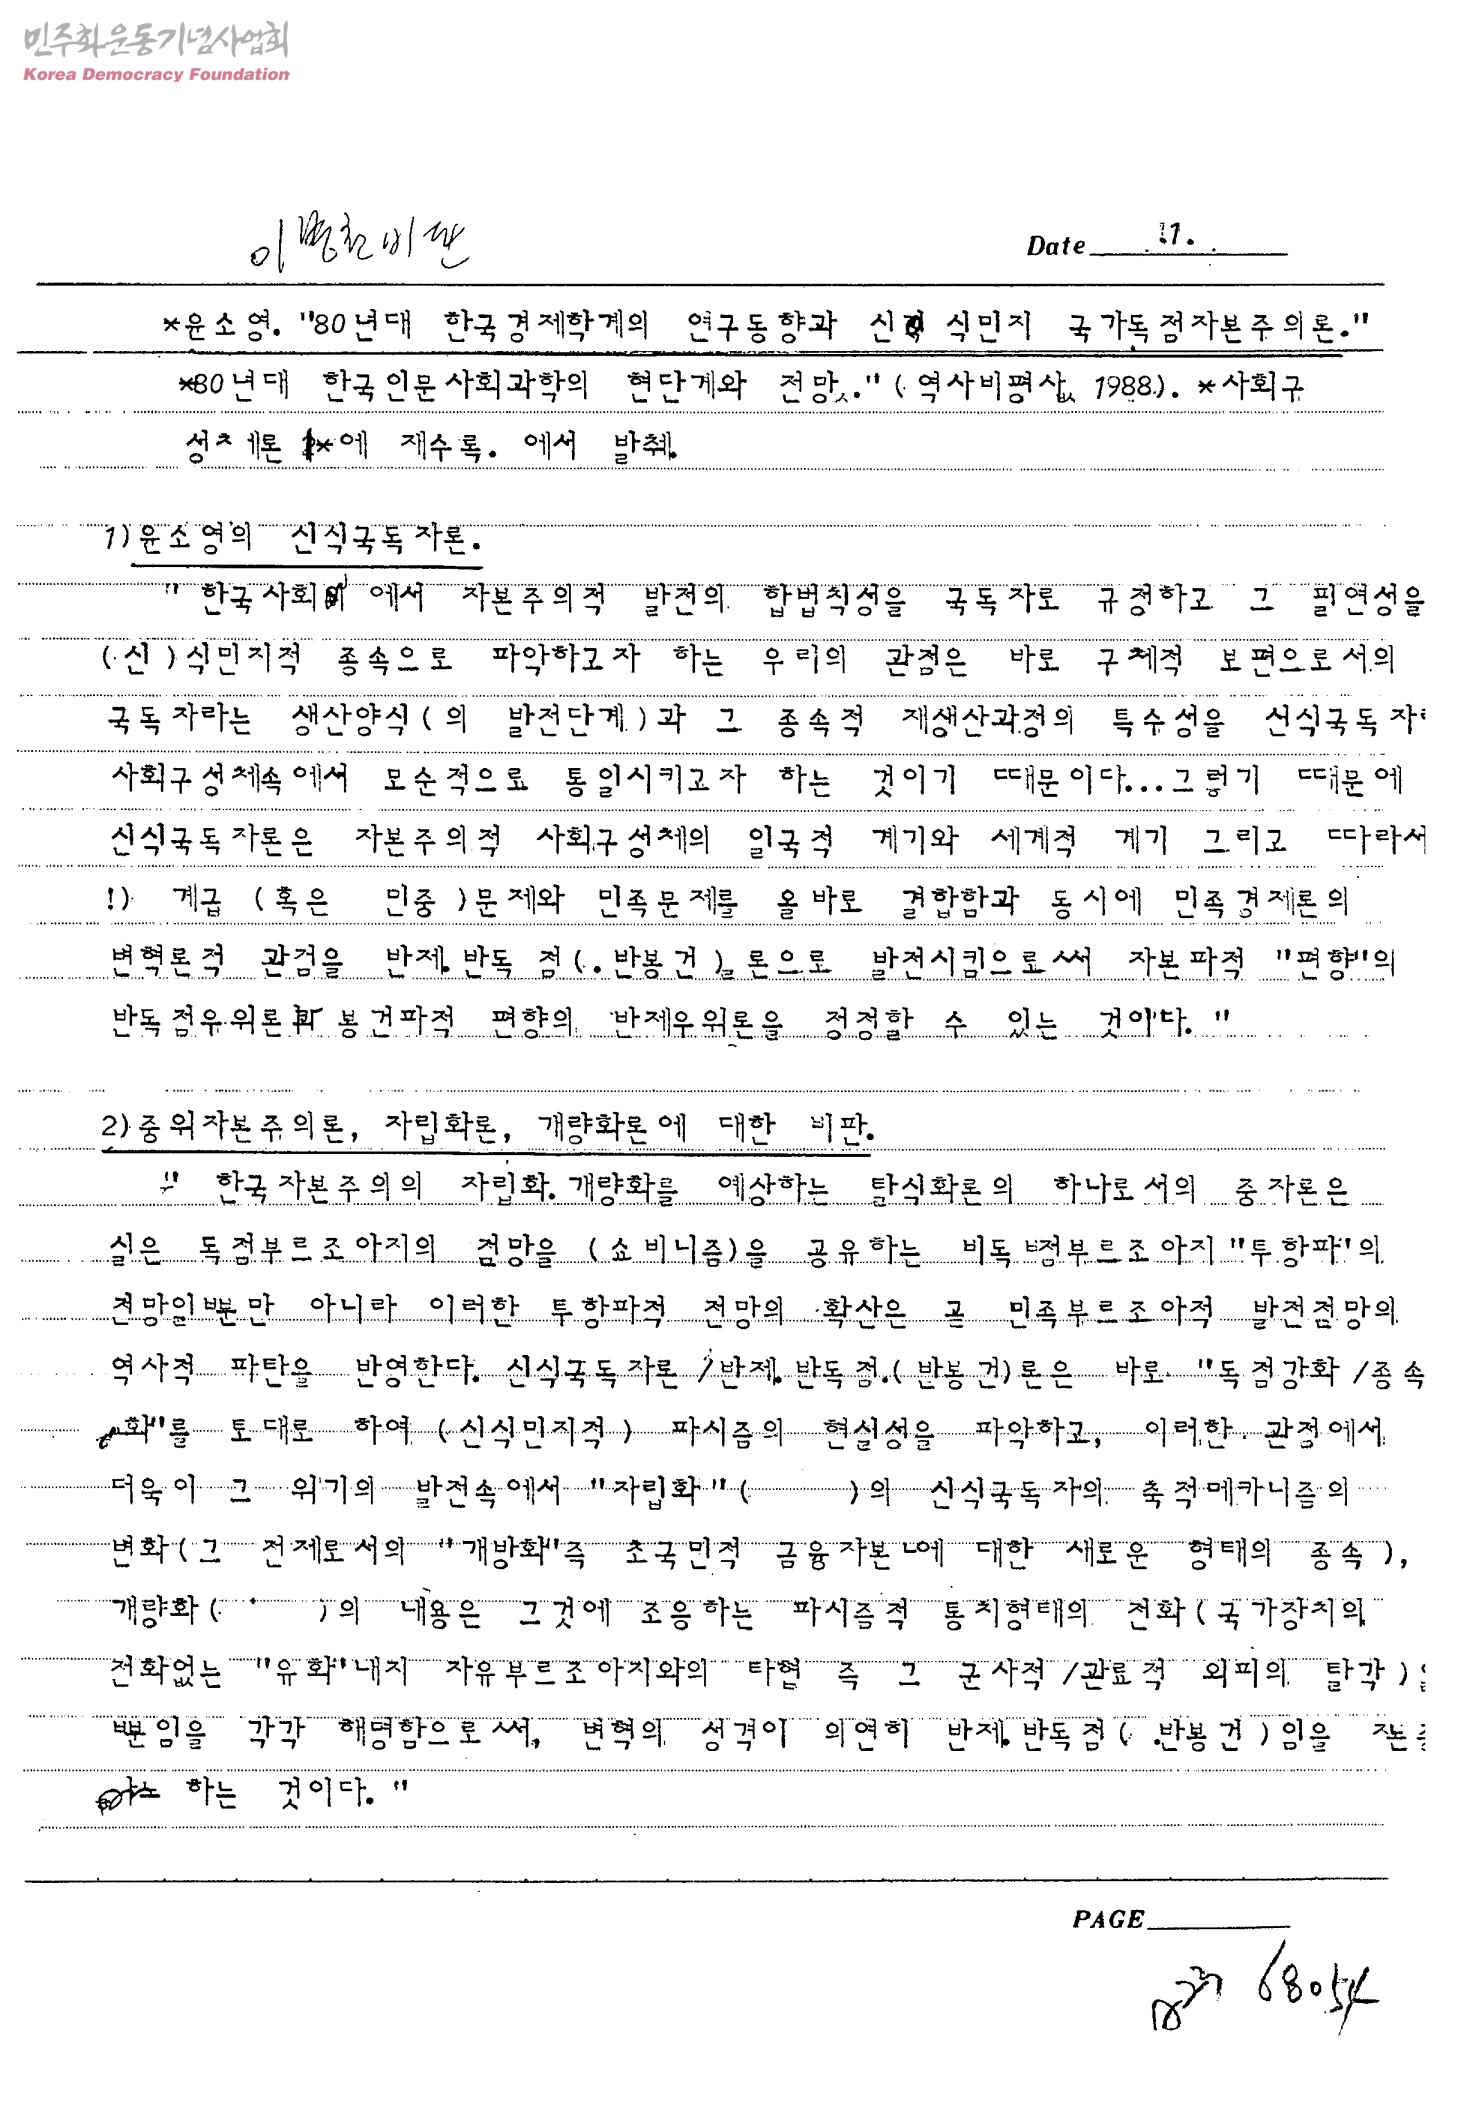 민주화운동기념사업회
Korea Democracy Foundation
이병천 비판
Date 1.
*윤소영. "80년대 한국경제학계의 연구동향과 신 식민지 국가독점자본주의론."
*80년대 한국인문사회과학의 현단계와 전망." (역사비평사, 1988.). *사회구
성체론 1*에 재수록. 에서 발췌.
1)윤소영의 신식국독자론.
" 한국사회 에서 자본주의적 발전의 합법칙성을 국독자로 규정하고 그 필연성을
(신)식민지적 종속으로 파악하고자 하는 우리의 관점은 바로 구체적 보편으로서의
국독자라는 생산양식(의 발전단계)과 그 종속적 재생산과정의 특수성을 신식국독자
사회구성체속에서 모순적으로 통일시키고자 하는 것이기 때문이다...그렇기 때문에
신식국독자론은 자본주의적 사회구성체의 일국적 계기와 세계적 계기 그리고 따라서
!) 계급 (혹은 민중 )문제와 민족문제를 올바로 결합함과 동시에 민족경제론의
변혁론적 관점을 반제.반독 점(.반봉건) 론으로 발전시킴으로써 자본파적 "편향"의
반독점우위론과 봉건파적 편향의 반제우위론을 정정할 수 있는 것이다. "
2)중위자본주의론, 자립화론, 개량화론에 대한 비판.
" 한국자본주의의 자립화.개량화를 예상하는 탈식화론의 하나로서의 중자론은
실은 독점부르조아지의 점망을 (쇼비니즘)을 공유하는 비독점부르조아지 "투항파"의
전망일뿐만 아니라 이러한 투항파적 전망의 확산은 곧 민족부르조아적 발전점망의
역사적 파탄을 반영한다. 신식국독자론 /반제.반독점.(반봉건)론은 바로 "독점강화 /종속
화"를 토대로 하여 (신식민지적 ) 파시즘의 현실성을 파악하고, 이러한 관점에서
더욱이 그 위기의 발전속에서 "자립화"( )의 신식국독자의 축적메카니즘의
변화(그 전제로서의 "개방화"즉 초국민적 금융자본 에 대한 새로운 형태의 종속 ),
개량화( )의 내용은 그것에 조응하는 파시즘적 통치형태의 전화(국가장치의
전화없는 "유화"내지 자유부르조아지와의 타협 즉 그 군사적 /관료적 외피의 탈각 )일
뿐임을 각각 해명함으로써, 변혁의 성격이 의연히 반제.반독점( .반봉건 )임을
하는 것이다. "
PAGE
68054